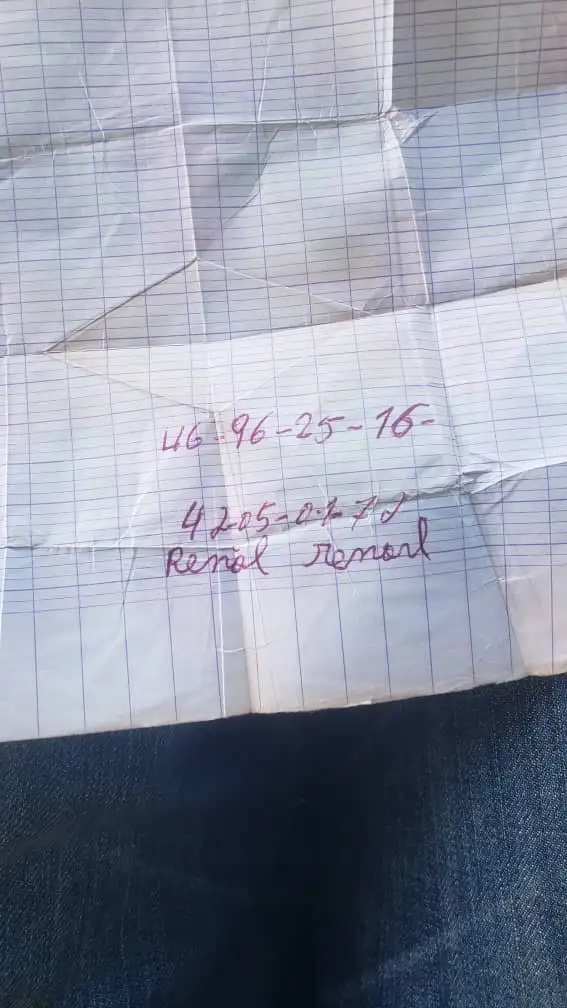 46-96-25-16-
42-05-01-72
Renal renarl